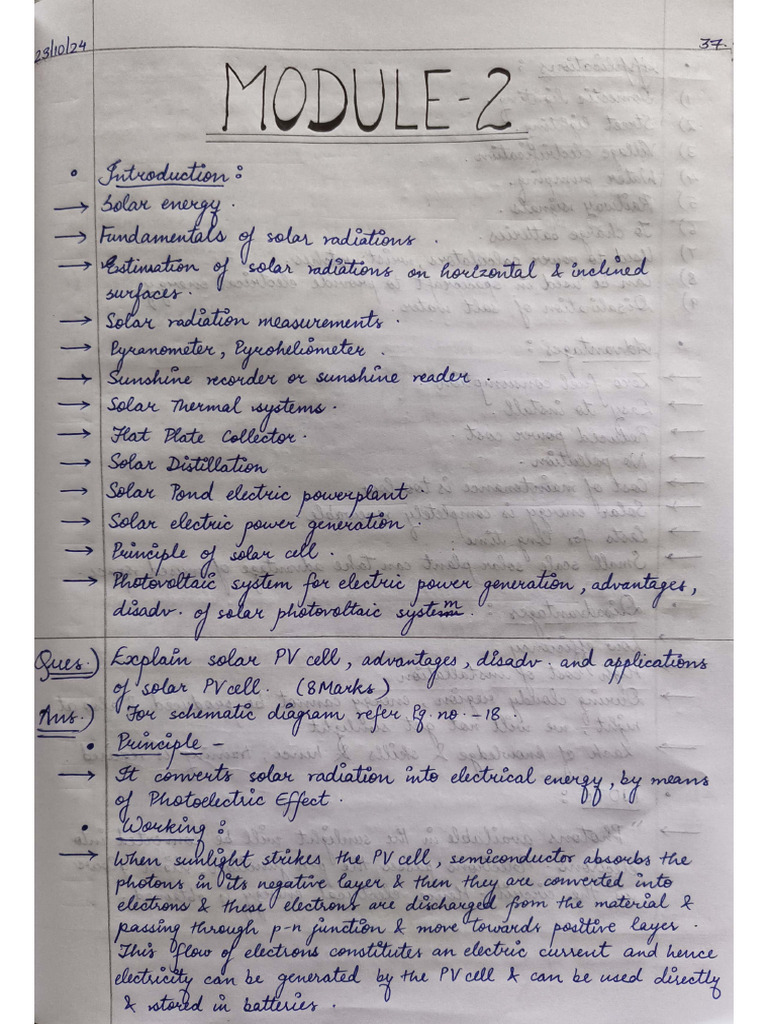 23/10/24
37.
MODULE-2
• Introduction :
→ Solar energy.
→ Fundamentals of solar radiations.
→ Estimation of solar radiations on horizontal & inclined
surfaces.
→ Solar radiation measurements.
→ Pyranometer, Pyroheliometer.
→ Sunshine recorder or sunshine reader.
→ Solar Thermal systems.
→ Flat Plate Collector.
→ Solar Distillation
→ Solar Pond electric powerplant.
→ Solar electric power generation.
→ Principle of solar cell.
→ Photovoltaic system for electric power generation, advantages,
disadv. of solar photovoltaic system.
Ques.) Explain solar PV cell, advantages, disadv. and applications
of solar PV cell. (8 Marks)
Ans.) For schematic diagram refer Pg. no. - 18.
• Principle -
→ It converts solar radiation into electrical energy, by means
of Photoelectric Effect.
• Working :
→ When sunlight strikes the PV cell, semiconductor absorbs the
photons in its negative layer & then they are converted into
electrons & these electrons are discharged from the material &
passing through p-n junction & move towards positive layer.
This flow of electrons constitutes an electric current and hence
electricity can be generated by the PV cell & can be used directly
& stored in batteries.